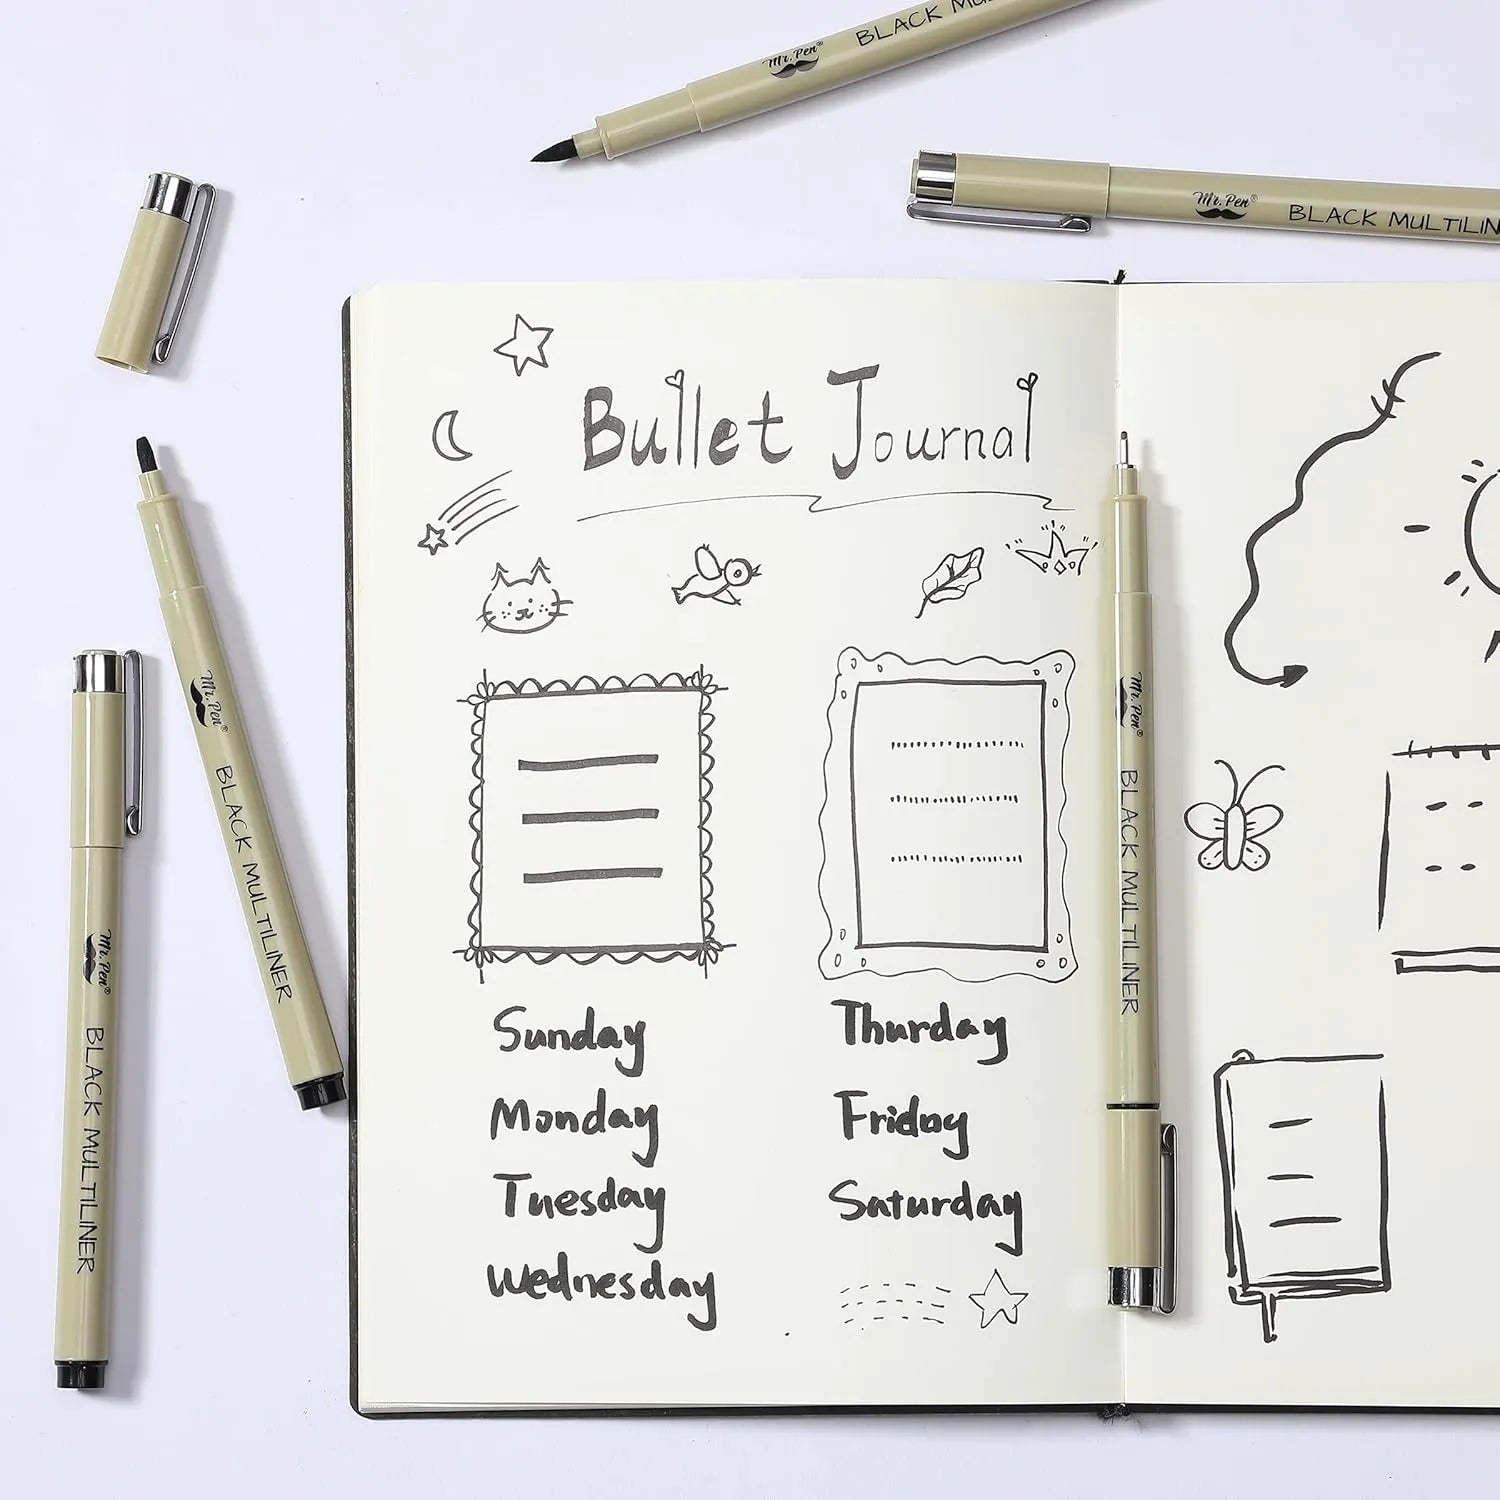 Mr. Pen® BLACK MULTILIN
Mr. Pen® BLACK MULTILIN
Bullet Journal
Mr. Pen® BLACK MULTILINER
Mr. Pen® BLACK MULTILINER
Mr. Pen® BLACK MULTILINER
Sunday
Monday
Tuesday
Wednesday
Thurday
Friday
Saturday